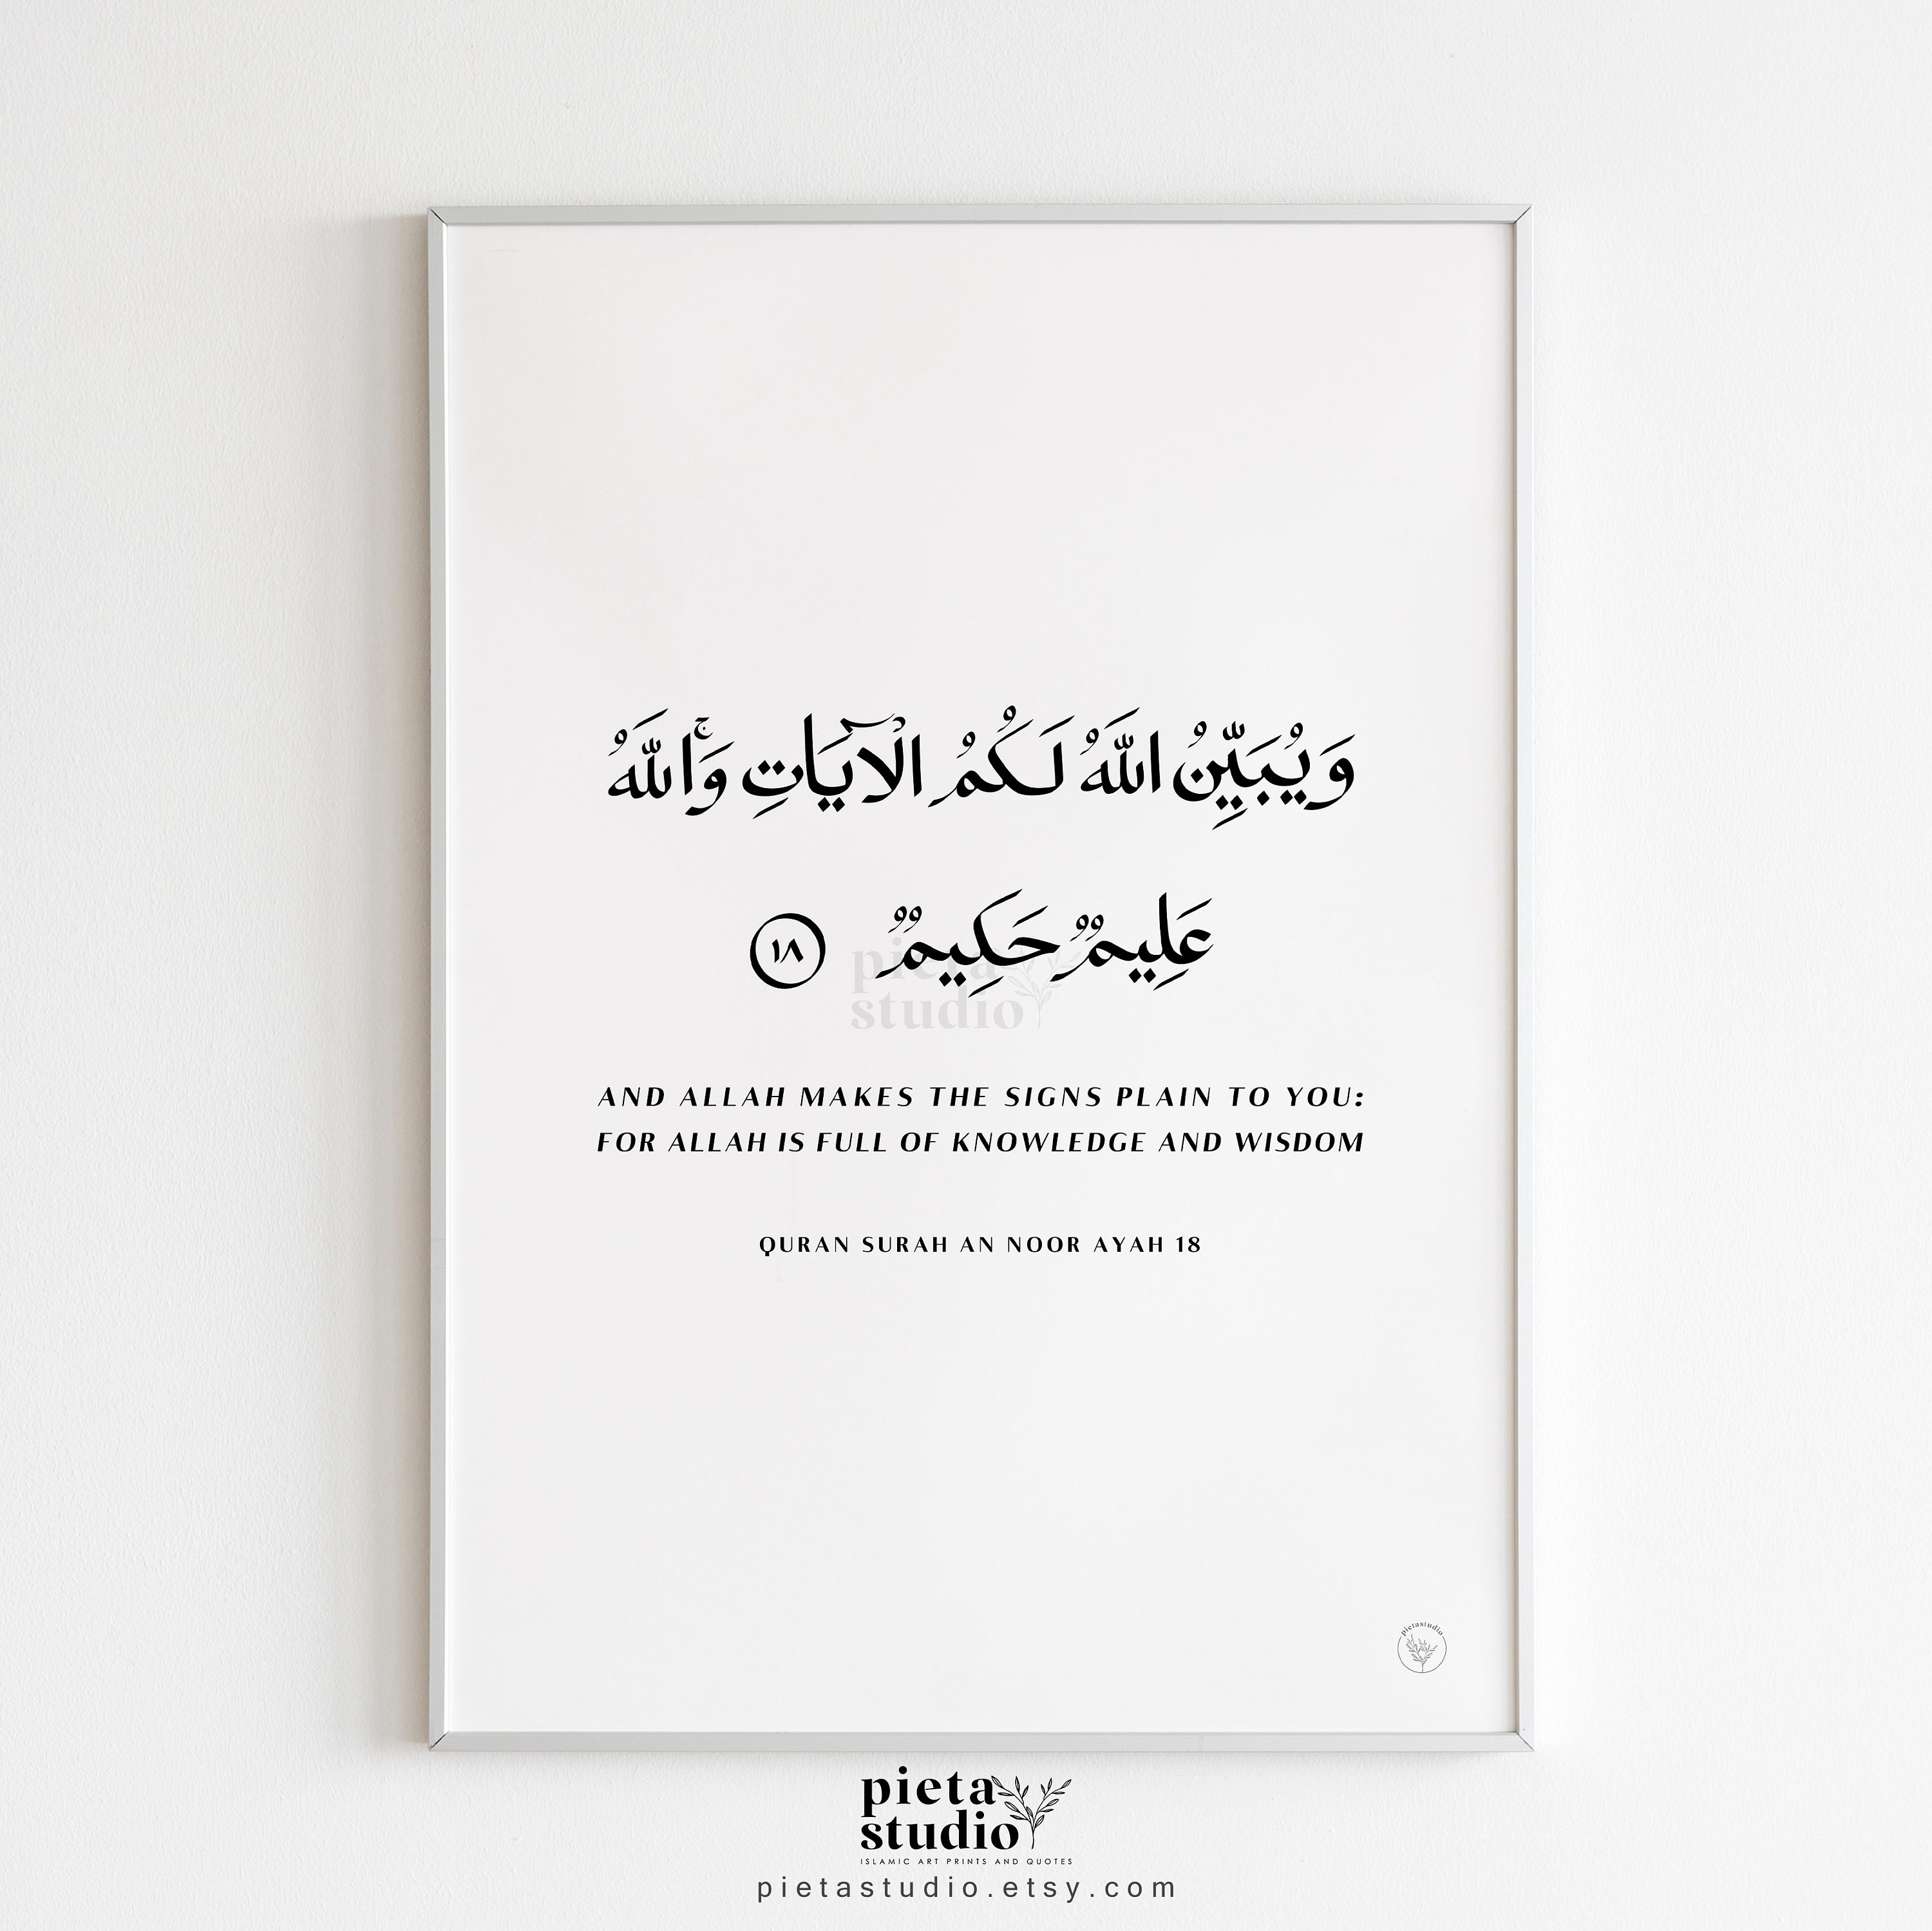 وَيُبَيِّنُ اللَّهُ لَكُمُ الْآيَاتِ ۚ وَاللَّهُ
عَلِيمٌ حَكِيمٌ ١٨
pieta
studio
AND ALLAH MAKES THE SIGNS PLAIN TO YOU:
FOR ALLAH IS FULL OF KNOWLEDGE AND WISDOM
QURAN SURAH AN NOOR AYAH 18
pietastudio
pieta
studio
ISLAMIC ART PRINTS AND QUOTES
pietastudio.etsy.com